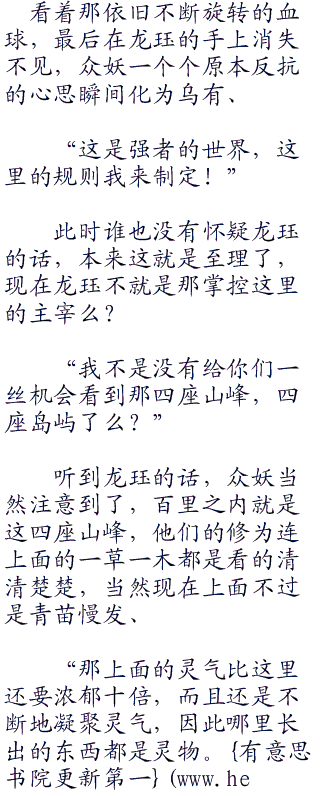 看着那依旧不断旋转的血
球，最后在龙珏的手上消失
不见，众妖一个个原本反抗
的心思瞬间化为乌有、
“这是强者的世界，这
里的规则我来制定！”
此时谁也没有怀疑龙珏
的话，本来这就是至理了，
现在龙珏不就是那掌控这里
的主宰么？
“我不是没有给你们一
丝机会看到那四座山峰，四
座岛屿了么？”
听到龙珏的话，众妖当
然注意到了，百里之内就是
这四座山峰，他们的修为连
上面的一草一木都是看的清
清楚楚，当然现在上面不过
是青苗慢发、
“那上面的灵气比这里
还要浓郁十倍，而且还是不
断地凝聚灵气，因此哪里长
出的东西都是灵物。{有意思
书院更新第一}(www.he